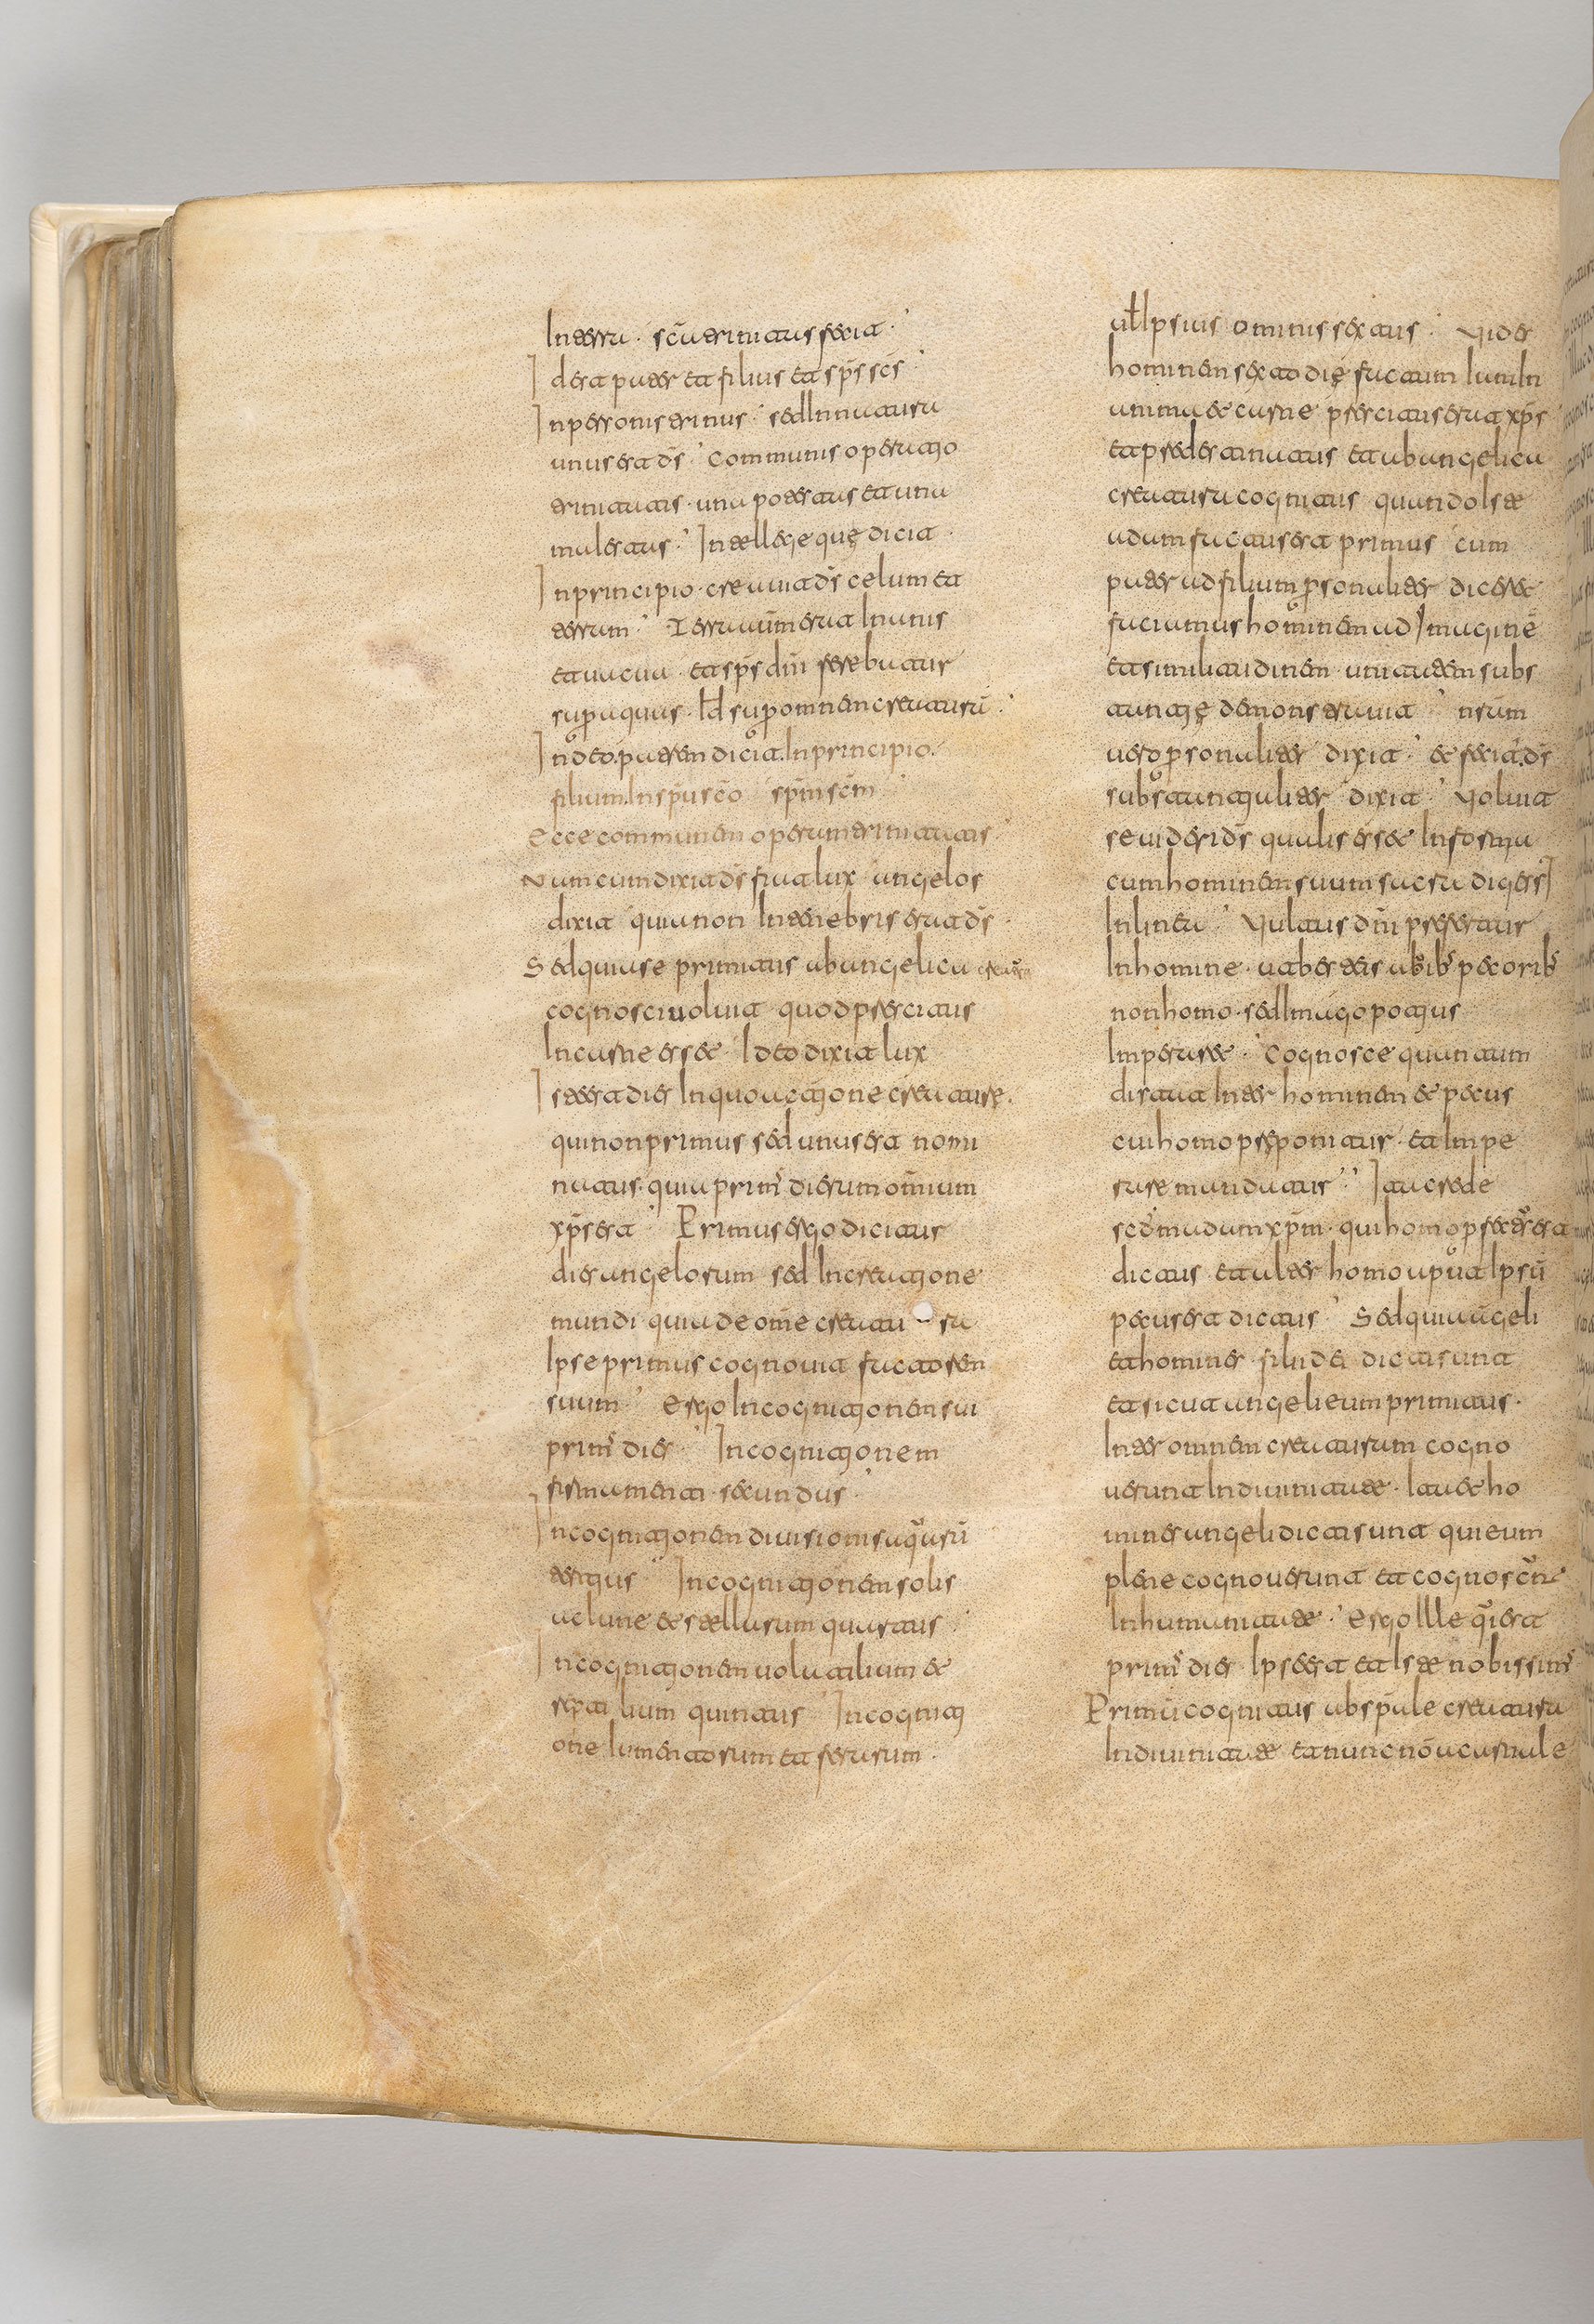 In terra · scā trinitas fecit ·
Id est pater et filius et sp̄s scs̄
In personis trinus · sed In natura
unus est ds̄ · communis operatio
trinitatis · una potestas et una
maiestas · Intellege quę dicit ·
In principio · creauit ds̄ celum et
terram · Terra autm̄ erat Inanis
et uacua · et sp̄s dn̄i ferebatur
super aquas · Id super omnem creaturā ·
In dō · patrem dicit. In principio.
filium. In sp̄u scō sp̄m scm̄
Ecce communem operam trinitatis
Nam cum dixit ds̄ fiat lux angelos
dixit quia non In tenebris erat ds̄ ·
Sed quia se primitus ab angelica creatura
cognosci uoluit quod prescitus
In carne esset · Ideo dixit lux
Iste est dies In quo uocatione creature.
qui non primus sed unus est nomi
natus · quia prim' dierum omium
xp̄s est Primus ergo dicitur
dies angelorum sed In creatione
mundi quia de om̄e creatu ra
Ipse primus cognouit factorem
suum Ergo In cognitionem sui
prim' dies · In cognitionem
firmamenti · secundus
In cognitionem diuisionis aquarū
tertius In cognitionem solis
ac lune & stellarum quartus
In cognitionem uolatilium &
reptilium quintus In cogniti
one Iumentorum et ferarum ·
ut Ipsius ominis sextus · Vides
hominem sexto dię factum Iam In
anima & carne prescitus erat xp̄s
et predestinatus et ab angelica
creatura cognitus quando Iste
adam factus est primus cum
pater ad filium personaliter diceret
faciamus hominem ad Imaginē
et similitudinem unitatem subs
tantię demonstrauit
uero personaliter dixit · & fecit ds̄
substantialiter dixit · Voluit
se uideri ds̄ qualis esset In forma
cum hominem suum sacra digessi
In linea Vultus dn̄i prefertur
In homine · ut bestiis auib' pecorib'
non homo · sed Imago potius
Imperaret · Cognosce quantum
distat Inter hominem & pecus
cui homo preponitur · et Impe
rare mandatur Ita crede
scd'm adam xp̄m · qui homo perfectus est
dictus et alter homo apud Ipsū
pecus est dictus Sed quia angeli
et homines filii dei dicti sunt
et sicut angeli eum primitus ·
Inter omnem creaturam cogno
uerunt In diuinitate · Ita & ho
mines angeli dicti sunt qui eum
plene cognouerunt et cognoscunt
In humanitate · Ergo Ille qui est
prim' dies Ipse est et Iste nobissim'
Primū cognitus ab sp̄ale creatura
In diuinitate et nunc carnale